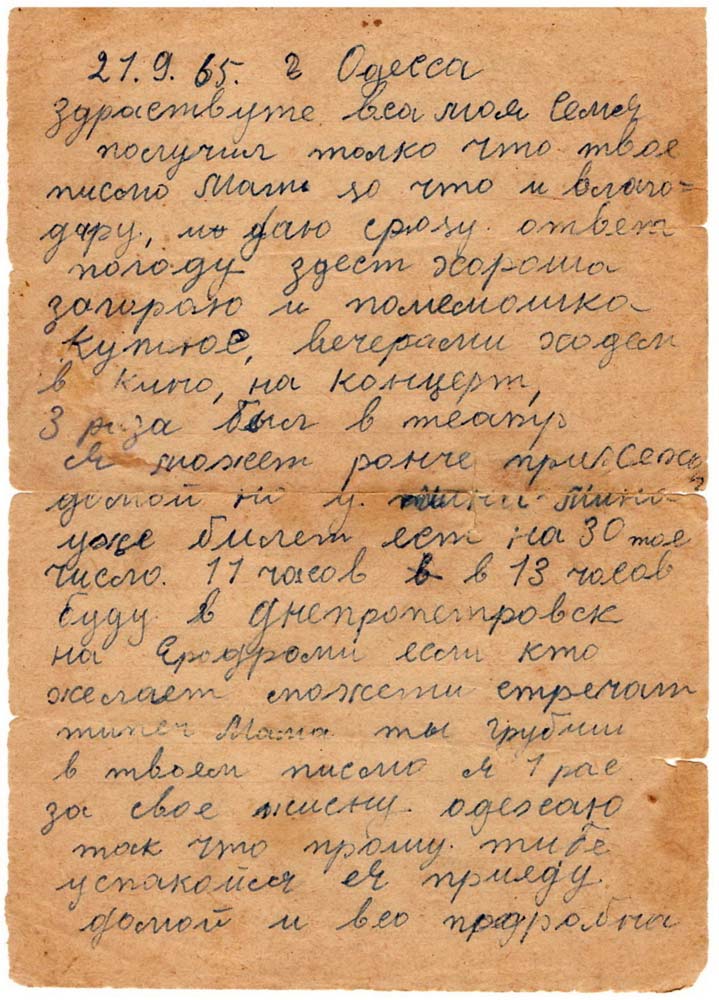 21.9.65. г Одесса
здраствуте вса моя семя
получил толко что твое
писмо Мати зо что и благо=
дару, и даю сразу ответ
погоду здест хороша
загораю и помемошка
купюс, вечерами ходем
в кино, на концерт,
3 раза был в театр
я может ранче приежаю
домой но у
уже билет ест на 30 тое
число. 11 часов в 13 часов
буду в Днепропетровск
на Еродроми если кто
желает можети стречат
типеч Мама ты грубиш
в твоем писмо я 1 рас
за свое жисну одехаю
так что прошу тибе
успакойся ея приеду
домой и всо подробна